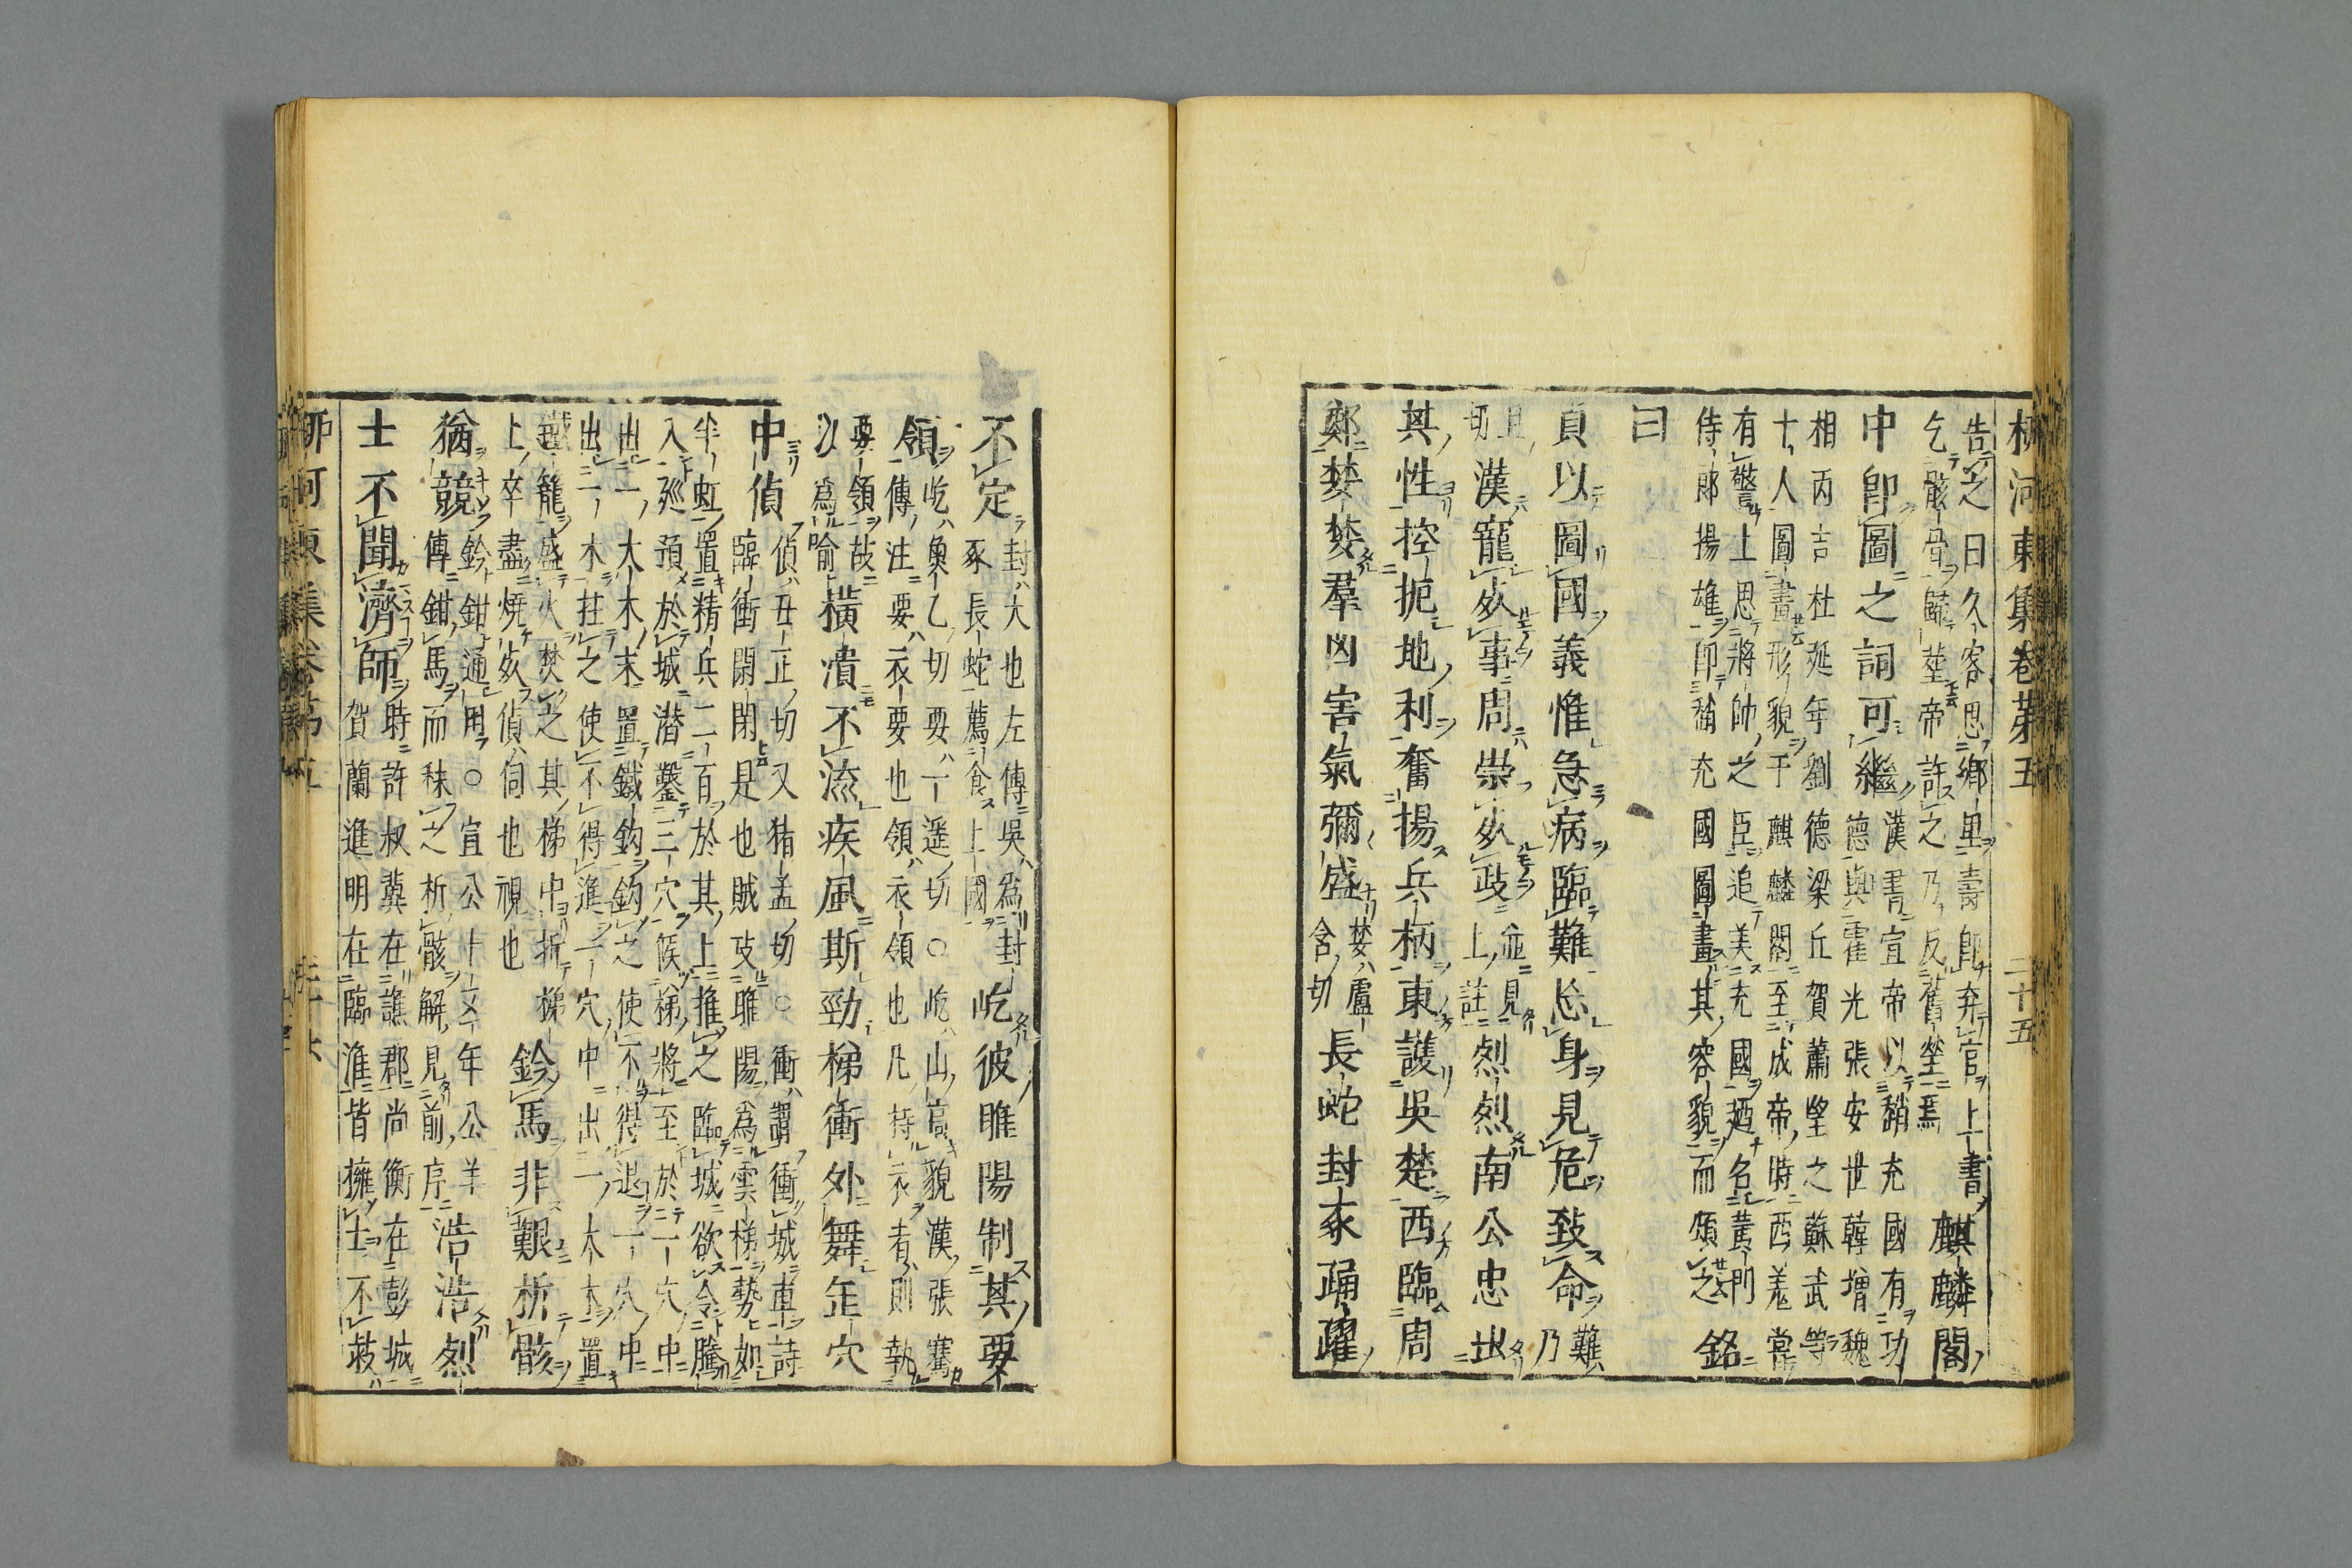 柳河東集卷第五 二十五
告之曰久客思鄉里壽即弃官上書
乞骸骨歸塟帝許之乃反舊塋焉
麒麟閣
中卽圖之詞可繼
漢書宣帝以稍充國有功
德與霍光張安世韓增魏
相丙吉杜延年劉德梁丘賀蕭望之蘇武等
十一人圖畫形貌于麒麟閣至成帝時西羌常
有警上思將帥之臣追美充國廼召黃門
侍郎揚雄即充國圖畫其容貌而頌之
銘
曰
貞以圖國義惟急病臨難忘身見危致命
難乃
且切
漢寵死事周崇死政
並見上註
烈烈南公忠出
其性控扼地利奮揚兵柄東護吳楚西臨周
鄭婪婪羣凶害氣彌盛
婪盧含切
長蛇封豕踊躍
不定
封大也左傳吳為封豕長蛇薦食上國
屹彼睢陽制其要
領
屹魚乙切要一遥切○屹山高貌漢張騫
傳注要衣要也領衣領也凡持衣者則執
要領故以為喻
橫潰不流疾風斯勁梯衝外舞缶穴
中偵
偵丑正切又猪孟切○衝謂衝城車詩
臨衝閑閑是也賊攻睢陽為雲梯勢如
半虹置精兵二百於其上推之臨城欲令騰
入廵預於城潜鑿三穴候梯將至於一穴中
出一大木末置鐵鉤鉤之使不得退一穴中
出一木拄之使不得進一穴中出一木木置
鐵籠盛火焚之其梯中折梯
上卒盡燒死偵伺也視也
鈐馬非艱析骸
猶競
鈐鉗通用○宣公十五年公羊
傳鉗馬而秣之析骸解見前序
浩浩烈
士不聞濟師
時許叔冀在譙郡尚衡在彭城
賀蘭進明在臨淮皆擁士不救
柳河東集卷第五